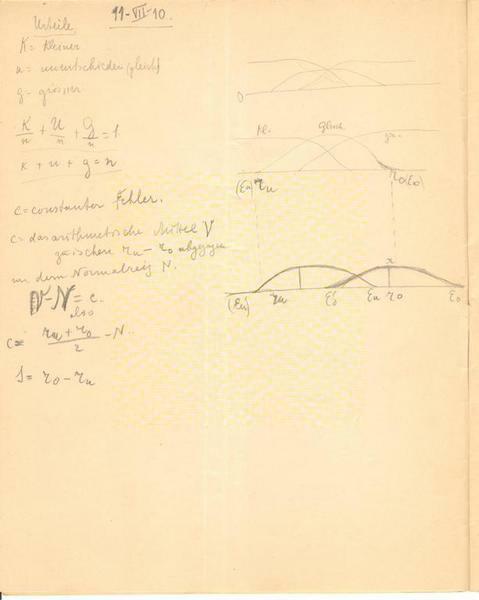 11-VII-10.
Urteile
K = Kleiner
u = unentschieden (gleich)
g = grösser
K/n + U/n + G/n = 1.
K + u + g = n
c = constanter Fehler.
c = das arithmetische Mittel V
zwischen ru - ro abgezogen
von dem Normalreiz N.
V - N = c.
also
c = ru + ro / 2 - N.
S = ro - ru
0
Kl. gleich gr.
(Eu) ru ro (Eo)
(Eu) ru Eo Eu ro Eo